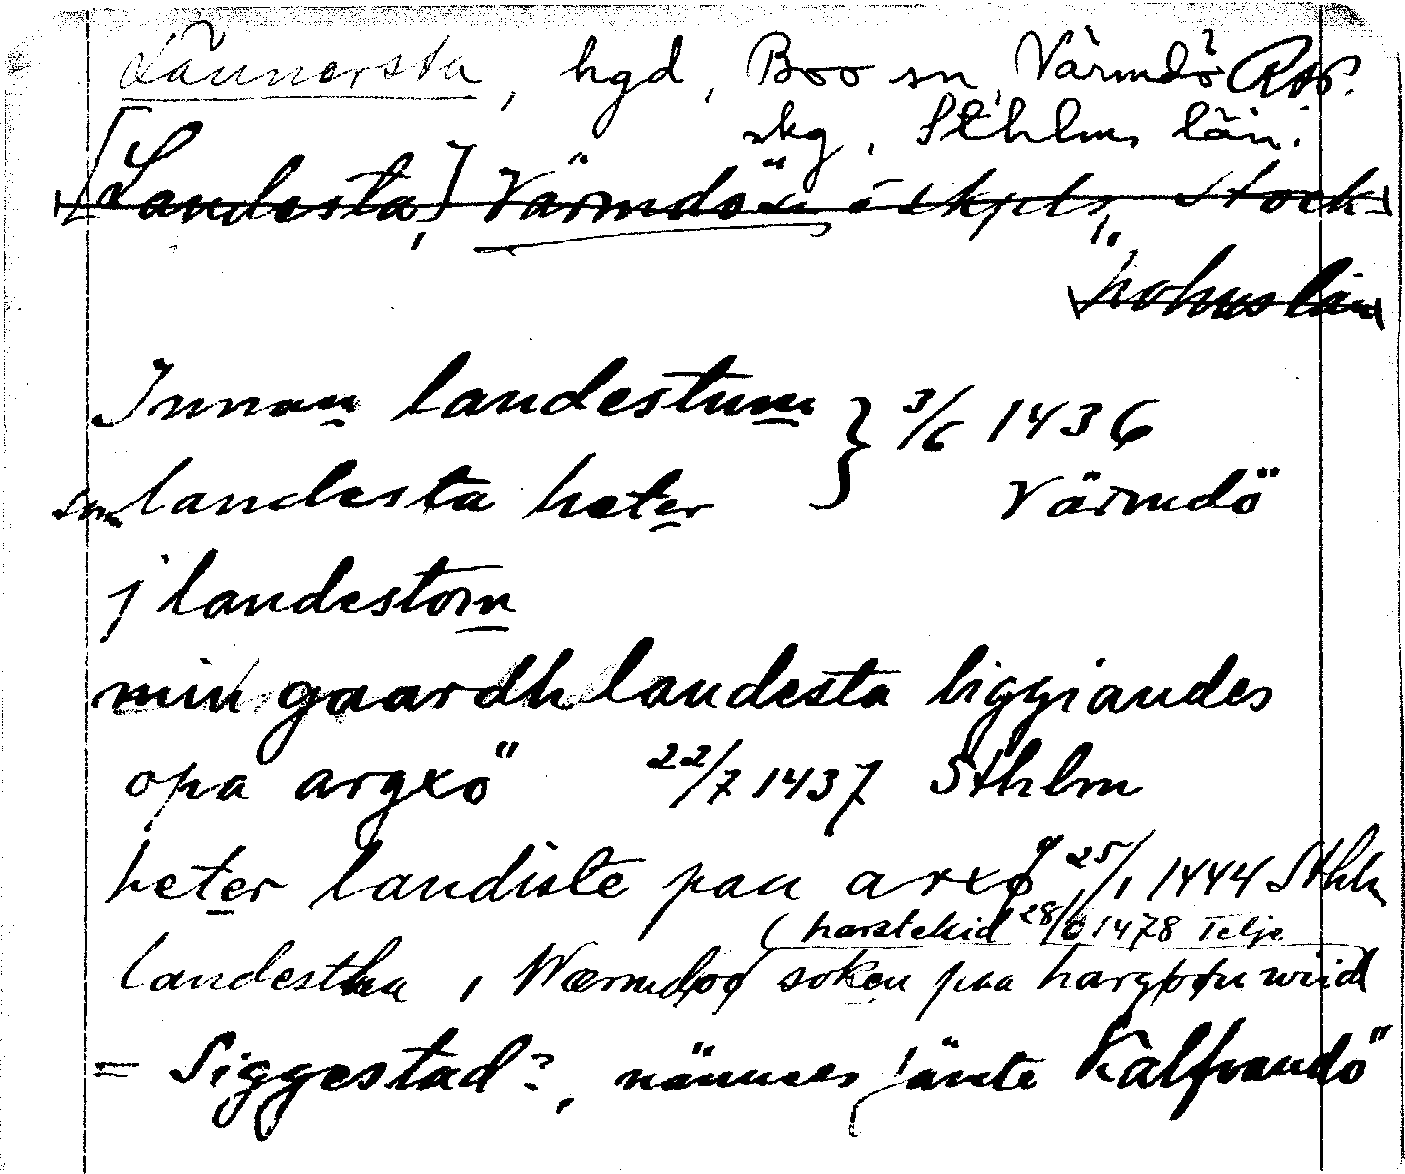 Lännersta, hgd, Boo sn, Värmdö Rap.
skg, Sthlms län.
[Landesta,] Värmdö sn ö skpl, Stock-
holms län
Innan landestum } 3/6 1436
som landesta heter Värmdö
j landestom
min gaardh landesta liggiandes
opa argxö 22/7 1437 Sthlm
heter landiste paa arxø 25/1 1444 Sthlm
(harstekid 28/6 1478 Telje
landestha, Wærmdøø soken paa hargøøn wiid
= Siggestad?, nämnes jämte Kalfsundö